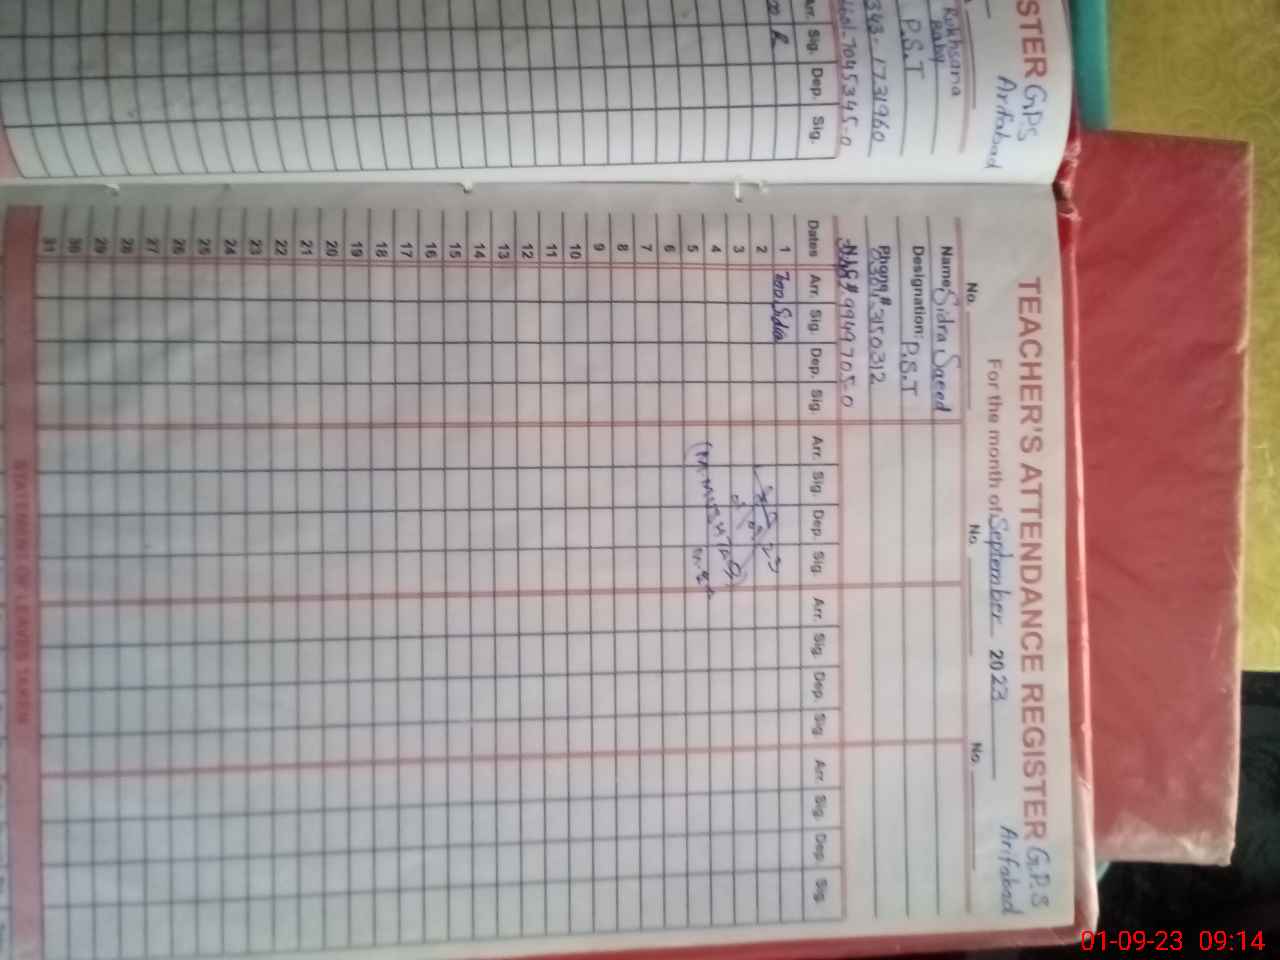 STER GPS
Arifabad
Rokhsana
Baby
P.S.T
343-1731960
7045345-0
Arr. Sig. Dep. Sig.
TEACHER'S ATTENDANCE REGISTER G.P.S
For the month of September 2023 Arifabad
No. No. No.
Name: Sidra Saeed
Designation: P.S.T
Phone #
NIC #
Dates Arr. Sig. Dep. Sig. Arr. Sig. Dep. Sig. Arr. Sig. Dep. Sig. Arr. Sig. Dep. Sig.
1 Sidra
2
3
4
5
6
7
8
9
10
11
12
13
14
15
16
17
18
19
20
21
22
23
24
25
26
27
28
29
30
31
(M. MUSHTAQ)
STATEMENT OF LEAVES TAKEN
01-09-23 09:14